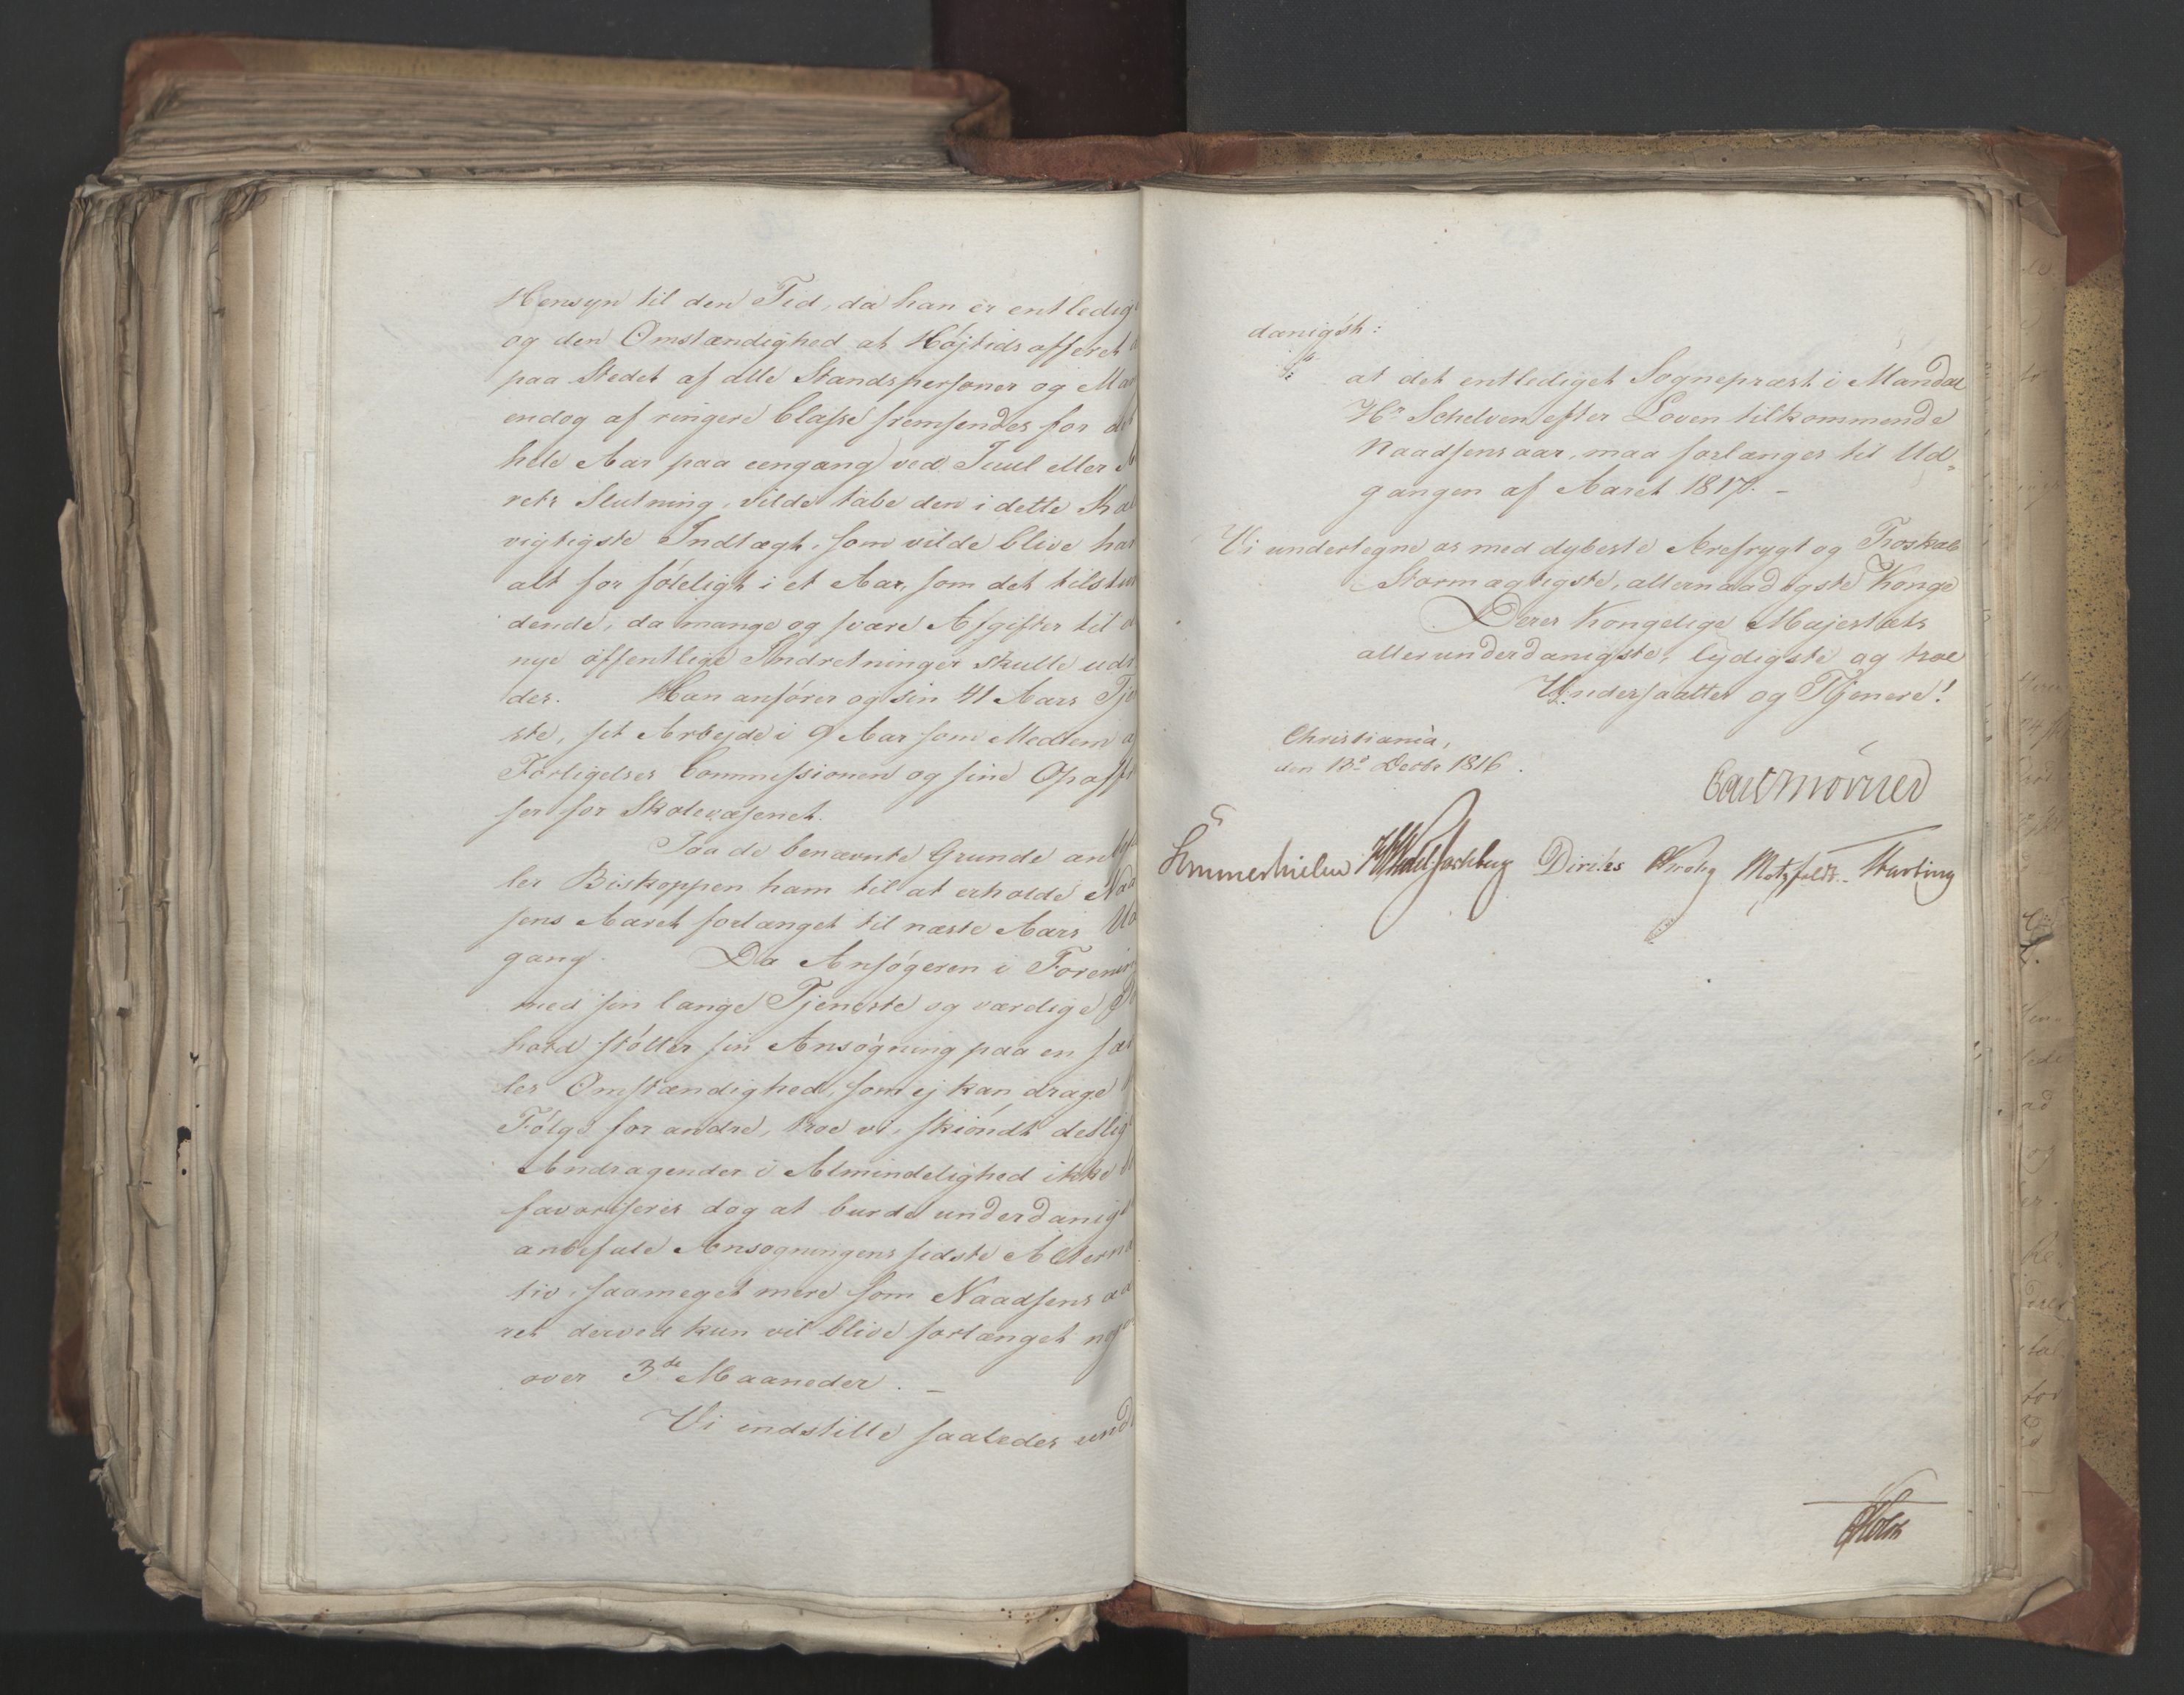 Hensyn til den Tid, da han er entledig
og den Omstændighed at Højtidsofferet
paa Stedet af alle Standspersoner og Man
endog af ringere Classe fremsendes for de
hele Aar paa eengang ved Juul eller A
rets Slutning, vilde tabe den i dette Kal
vigtigste Indtægt, som vilde blive ham
alt for föleligt i et Aar, som det tilstun
dende, da mange og svære Afgifter til d
nye offentlige Indretninger skulle udr
des. Han anförer og sin 41 Aars Tje
ste, sit Arbejde i 9 Aar som Medlem a
Forligelses Commissionen og sine Opoff
ser for Skolevæsenet.
Paa de benævnte Grunde anbef
ler Biskoppen ham til at erholde Naa
sens Aaret forlænget til næste Aars Ud
gang. Da Ansøgeren i Forenin
med sin lange Tjeneste og værdige
hold stötter sin Ansögning paa en sær
les Omstændighed, som ej kan drage
Fölge for andre, troe vi, skiöndt deslig
Andragender i Almindelighed ikke
favoriseres dog at burde underdanig
anbefale Ansøgningens sidste Alterna
tiv, saameget mere som Naadsens aa
ret derved kun vil blive forlænget no
over 3de Maaneder. -
Vi indstille saaledes und
danigst:
at det entlediget Sognepræst i Mandal
Hr Schelven efter Loven tilkommende
Naadsensaar, maa forlænges til Ud=
gangen af Aaret 1817. -
Vi undertegne os med dybeste Ærefrygt og Troskab
Stormægtigste, allernaadigste Konge
Deres Kongelige Majestæts
allerunderdanigste, lydigste og troe
Undersaatter og Tjenere!
Christiania,
den 13de Decbr 1816.
Carl Mörner
Sommerhielm Diriks Krohg Motzfeldt. Harbing
Holst